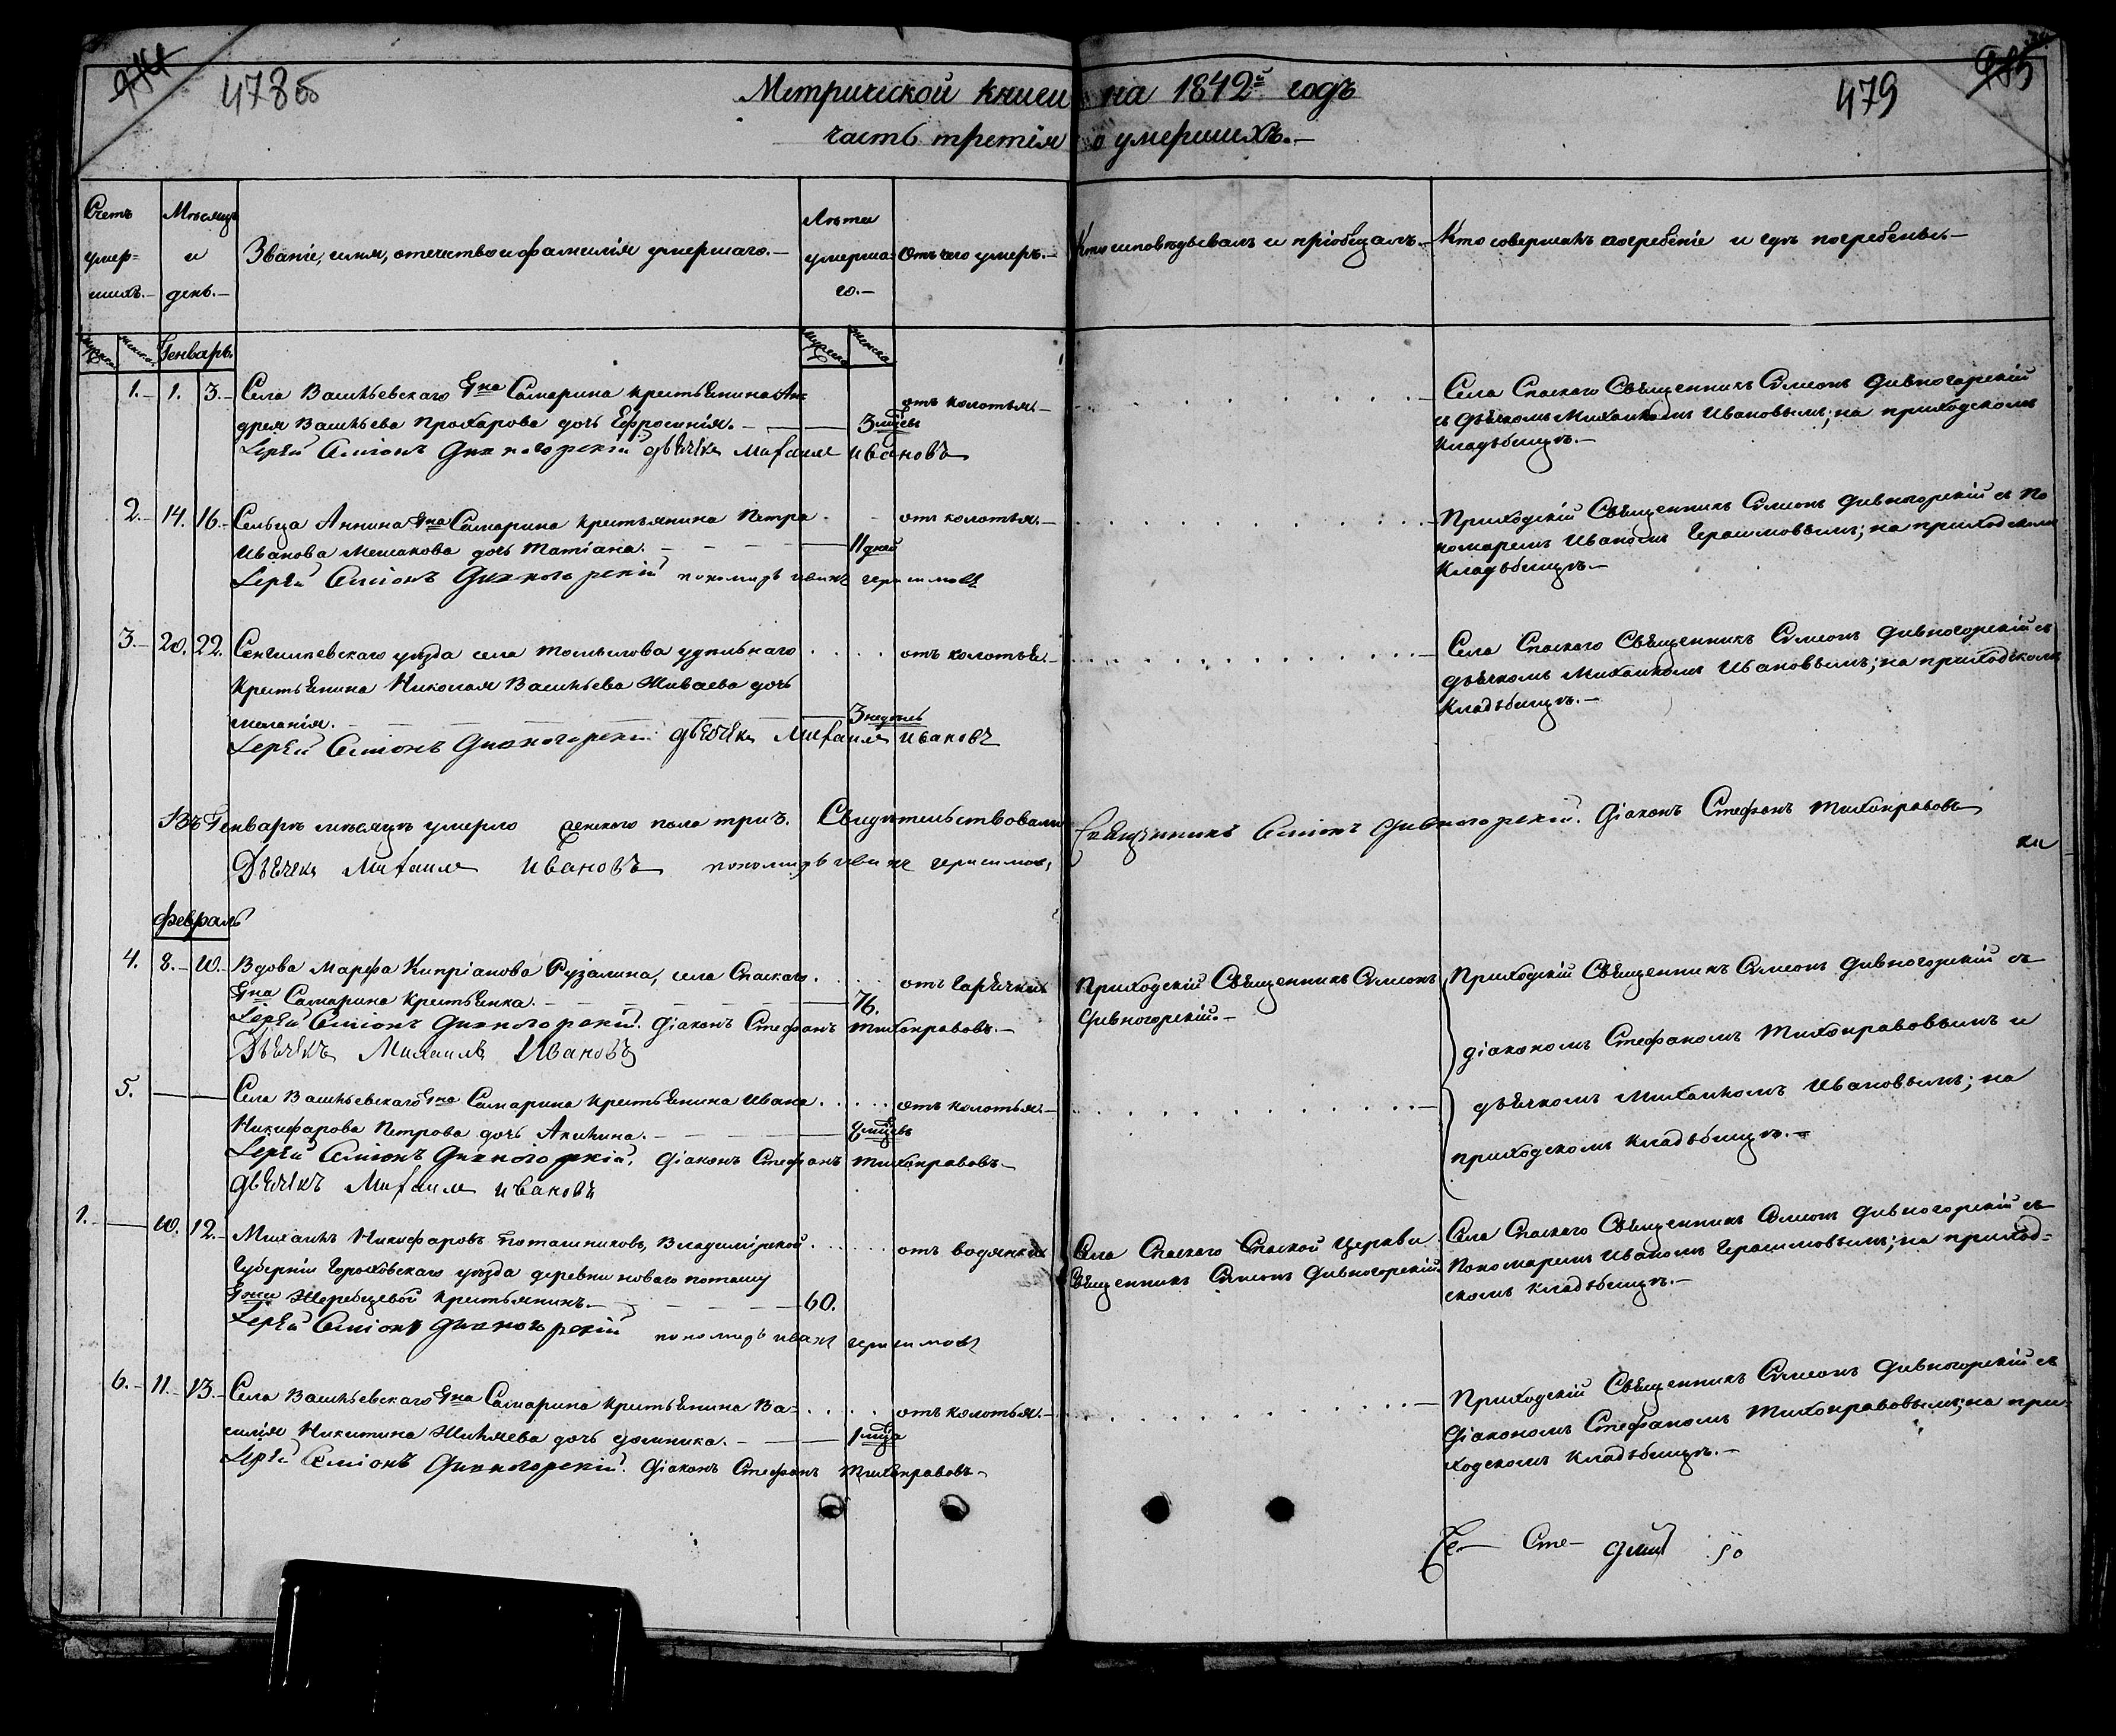 478об
479
Метрической книги на 1842й годъ
часть третія о умершихъ.—
Счетъ умер=шихъ.—
Мѣсяцъ и день.—
Званіе, имя, отечество и фамилія умершаго.—
Лѣта умерша=го.—
Отъ чего умеръ.—
Кто исповѣдывалъ и пріобщалъ.—
Кто совершалъ погребеніе и гдѣ погребены.—
Генварь.
1.— 1. 3.— Села Васильевскаго Гна Самарина крестьянина Ан=
дрея Васильева Прохарова дочь Ефросинія.— 3 мцы отъ колотья.—
Іерей Симіонъ Дивногорскій дьячекъ Михаилъ Ивановъ
Села Спаскаго Священникъ Симеонъ Дивногорскій
съ дьячкомъ Михаиломъ Ивановымъ; на приходскомъ
кладбищѣ.—
2.— 14. 16.— Сельца Аннина Гна Самарина крестьянина Петра отъ колотья.—
Иванова Мешакова дочь Татіана.— 11 дней
Іерей Симіонъ Дивногорскій пономарь иванъ герасимовъ
Приходскій Священникъ Симеонъ Дивногорскій съ По
номаремъ Иваномъ Герасимовымъ; на приходскомъ
кладбищѣ.—
3.— 20. 22. Сенгилеевскаго уѣзда села Томылова удѣльнаго отъ колотья.—
крестьянина Николая Васильева Живаева дочь
Меланія.— 3 недѣль
Іерей Симіонъ Дивногорскій дьячекъ Михаилъ Ивановъ
Села Спаскаго Священникъ Симеонъ Дивногорскій съ
дьячкомъ Михаиломъ Ивановымъ; на приходскомъ
кладбищѣ.—
Въ Генварѣ мѣсяцѣ умерло женскаго пола три. Свидѣтельствовали Священникъ Симіонъ Дивногорскій. Діаконъ Стефанъ Тихонравовъ
Дьячекъ Михаилъ Ивановъ пономарь иванъ герасимовъ
Февраль
4. 8.— 10.— Вдова Марфа Кипріанова Рузалина, села Спаскаго отъ гарячки
Гна Самарина крестьянка.— 76.
Іерей Симіонъ Дивногорскій. Діаконъ Стефанъ Тихонравовъ.—
Дьячекъ Михаилъ Ивановъ
Приходскій Священникъ Симеонъ
Дивногорскій.—
Приходскій Священникъ Симеонъ Дивногорскій съ
діакономъ Стефаномъ Тихонравовымъ и
дьячкомъ Михаиломъ Ивановымъ; на
приходскомъ кладбищѣ.—
5. Села Васильевскаго Гна Самарина крестьянина Ивана отъ колотья.—
Никифарова Петрова дочь Акилина.— мцевъ
Іерей Симіонъ Дивногорскій. Діаконъ Стефанъ Тихонравовъ.—
дьячекъ Михаилъ Ивановъ
1. 10. 12.— Михаилъ Никифаровъ Поташниковъ, Владимірской отъ водянки
Губерніи Гороховскаго уѣзда деревни новаго поташу
Гжи Жеребцевой крестьянинъ.— 60.
Іерей Симіонъ Дивногорскій пономарь иванъ герасимовъ
Села Спаскаго Спаской Церкви
Священникъ Симеонъ Дивногорскій
Села Спаскаго Священникъ Симеонъ Дивногорскій съ
Пономаремъ Иваномъ Герасимовымъ; на приход=
скомъ кладбищѣ.—
6.— 11.— 13.— Села Васильевскаго Гна Самарина крестьянина Ва= отъ колотья.—
силія Никитина Жиляева дочь Домника.— 1 мца
Іерей Симіонъ Дивногорскій. Діаконъ Стефанъ Тихонравовъ.—
Приходскій Священникъ Симеонъ Дивногорскій съ
Діакономъ Стефаномъ Тихонравовымъ; на при=
ходскомъ кладбищѣ.—